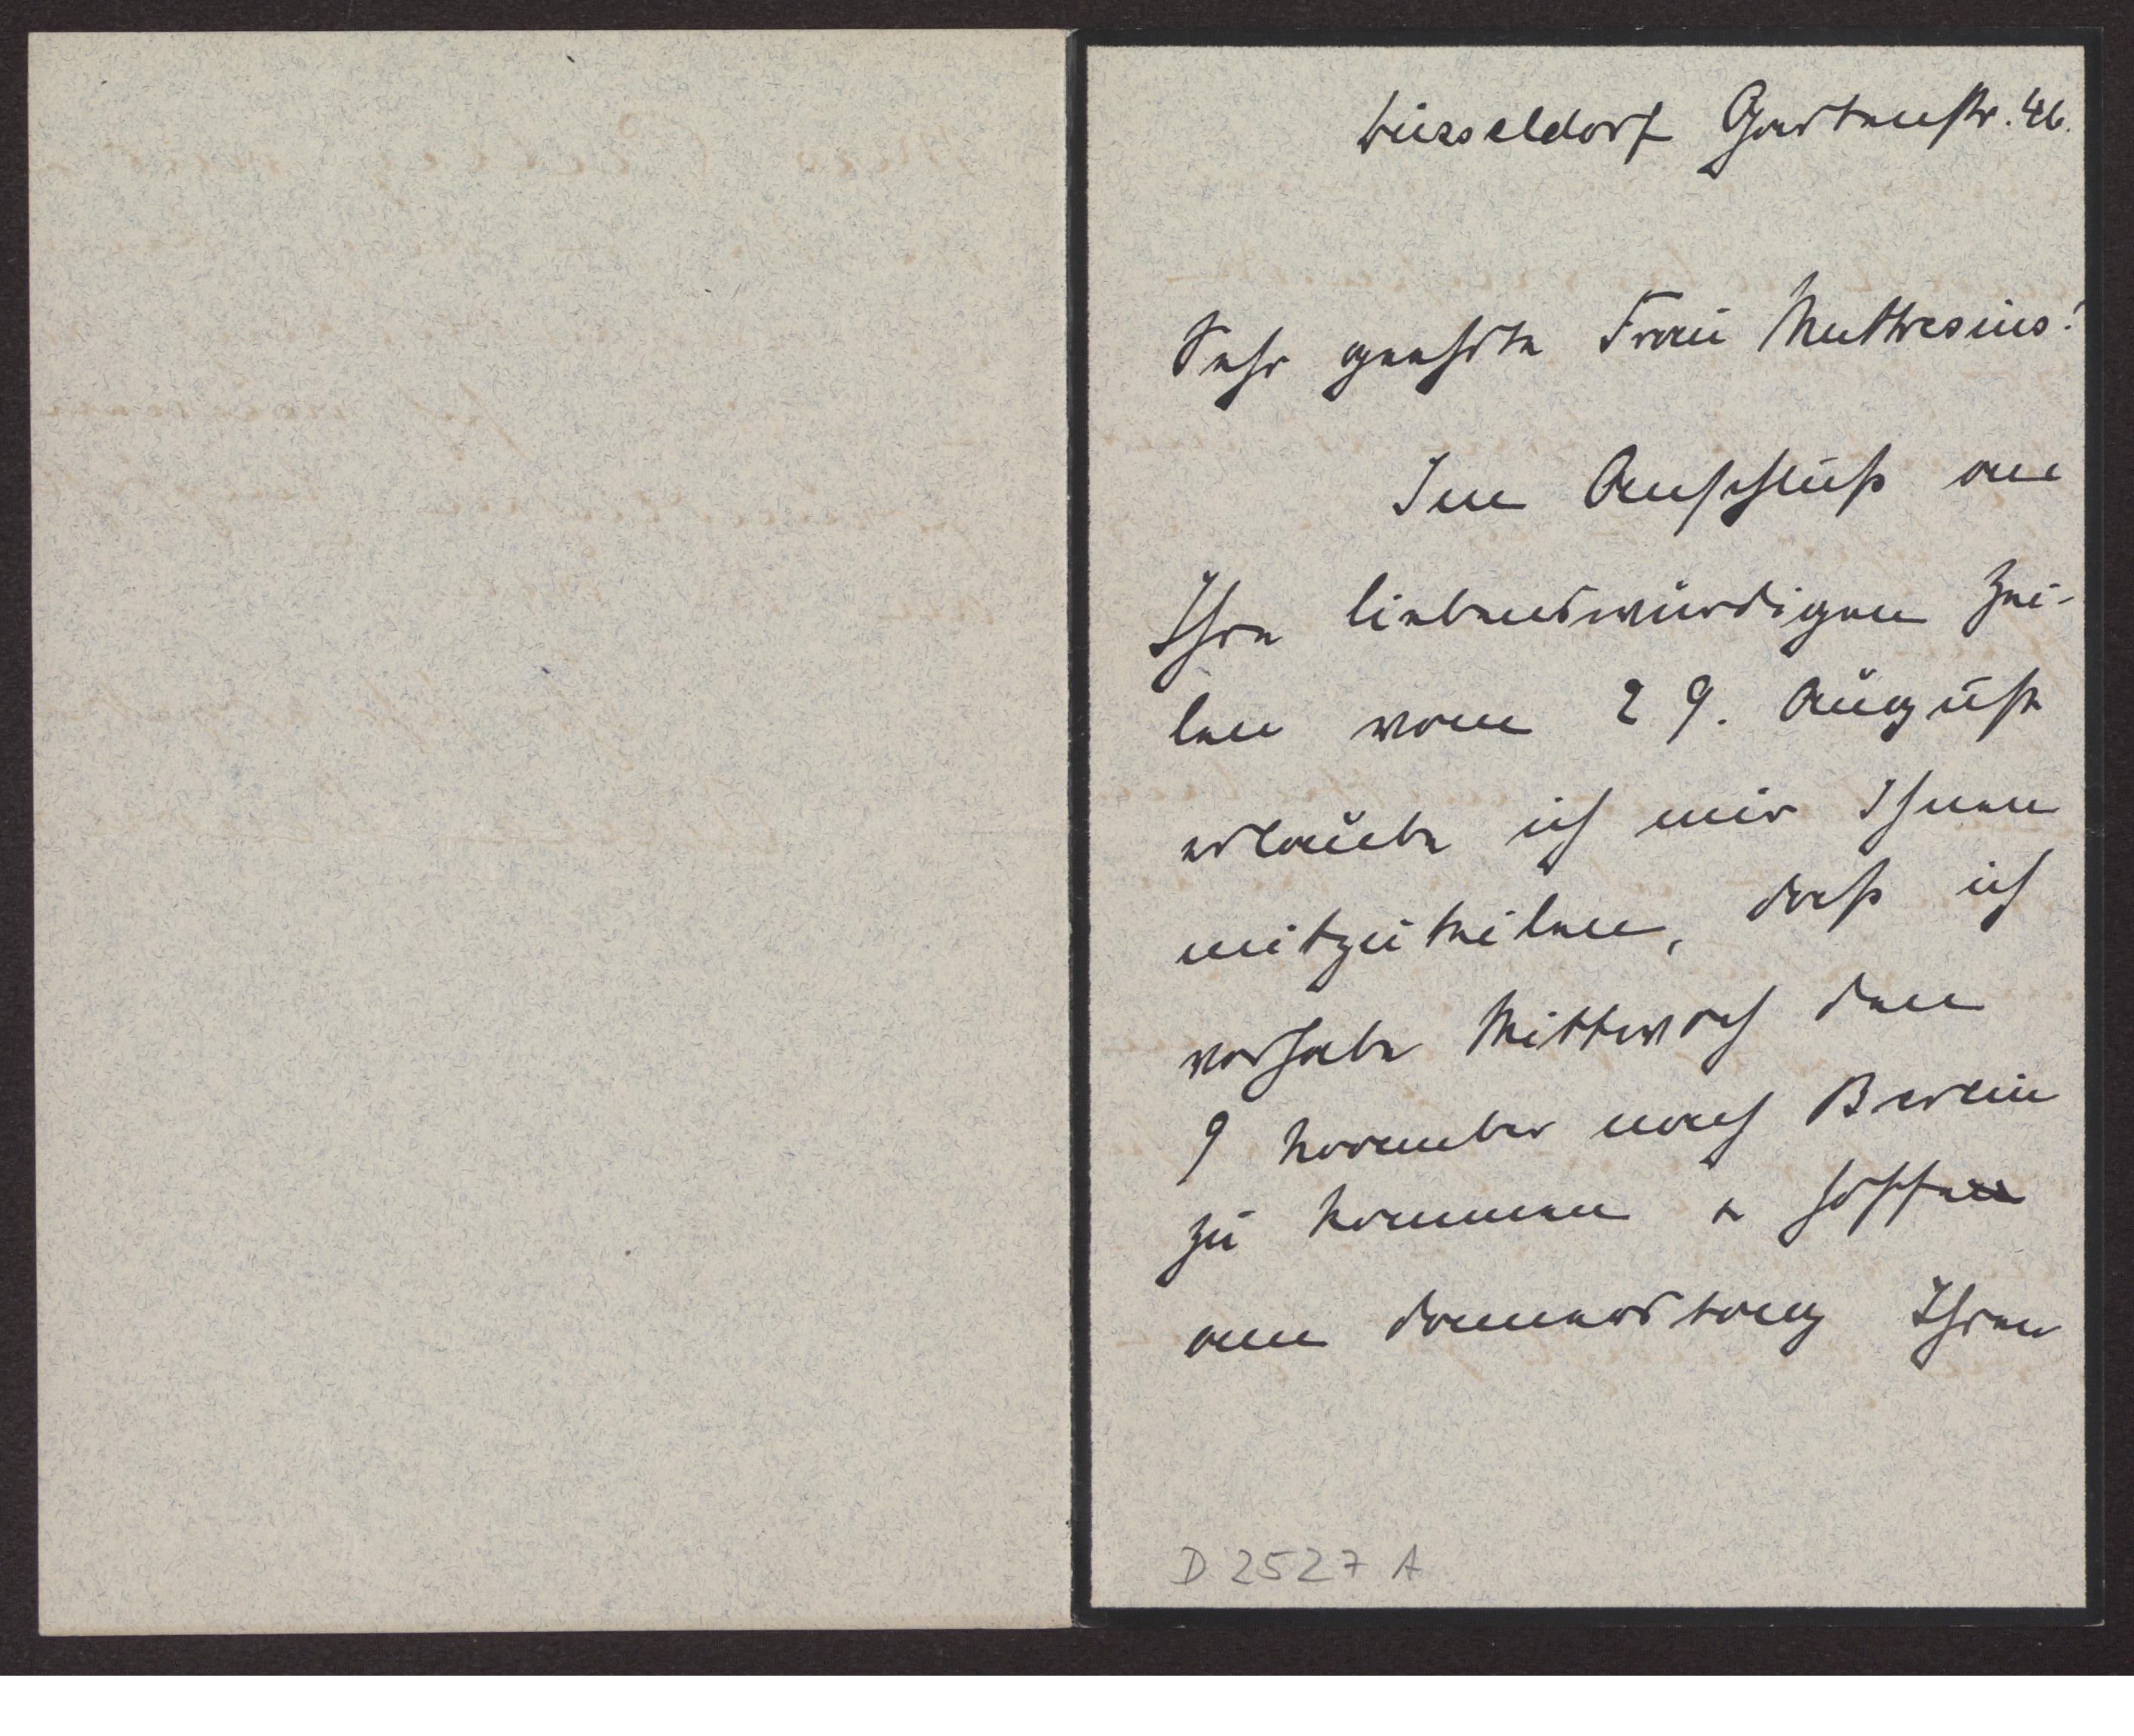 Düsseldorf Gartenstr. 46.
Sehr geehrte Frau Muthesius!
Im Anschluß an
Ihre liebenswürdigen Zei-
len vom 29. August
erlaube ich mir Ihnen
mitzuteilen, daß ich
vorhabe Mittwoch den
9 November nach Berlin
zu kommen & hoffe
am Donnerstag Ihren
D 2527 A